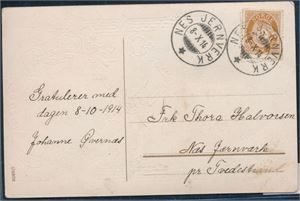 NES JERNVERK
8-X 14
NES JERNVERK
NORGE
Gratulerer med
dagen 8-10-1914
Johanne Gvernæs
Frk Thora Halvorsen
Næs Jernværk
pr Tvedestrand